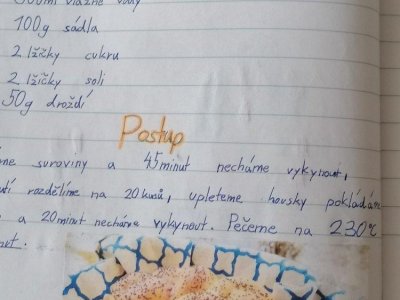 vlažné vody
100g sádla
2 lžičky cukru
2 lžičky soli
50g droždí
Postup
suroviny a 45 minut necháme vykynout,
rozdělíme na 20 kusů, upleteme housky pokládáme
a 20 minut necháme vykynout. Pečeme na 230°C